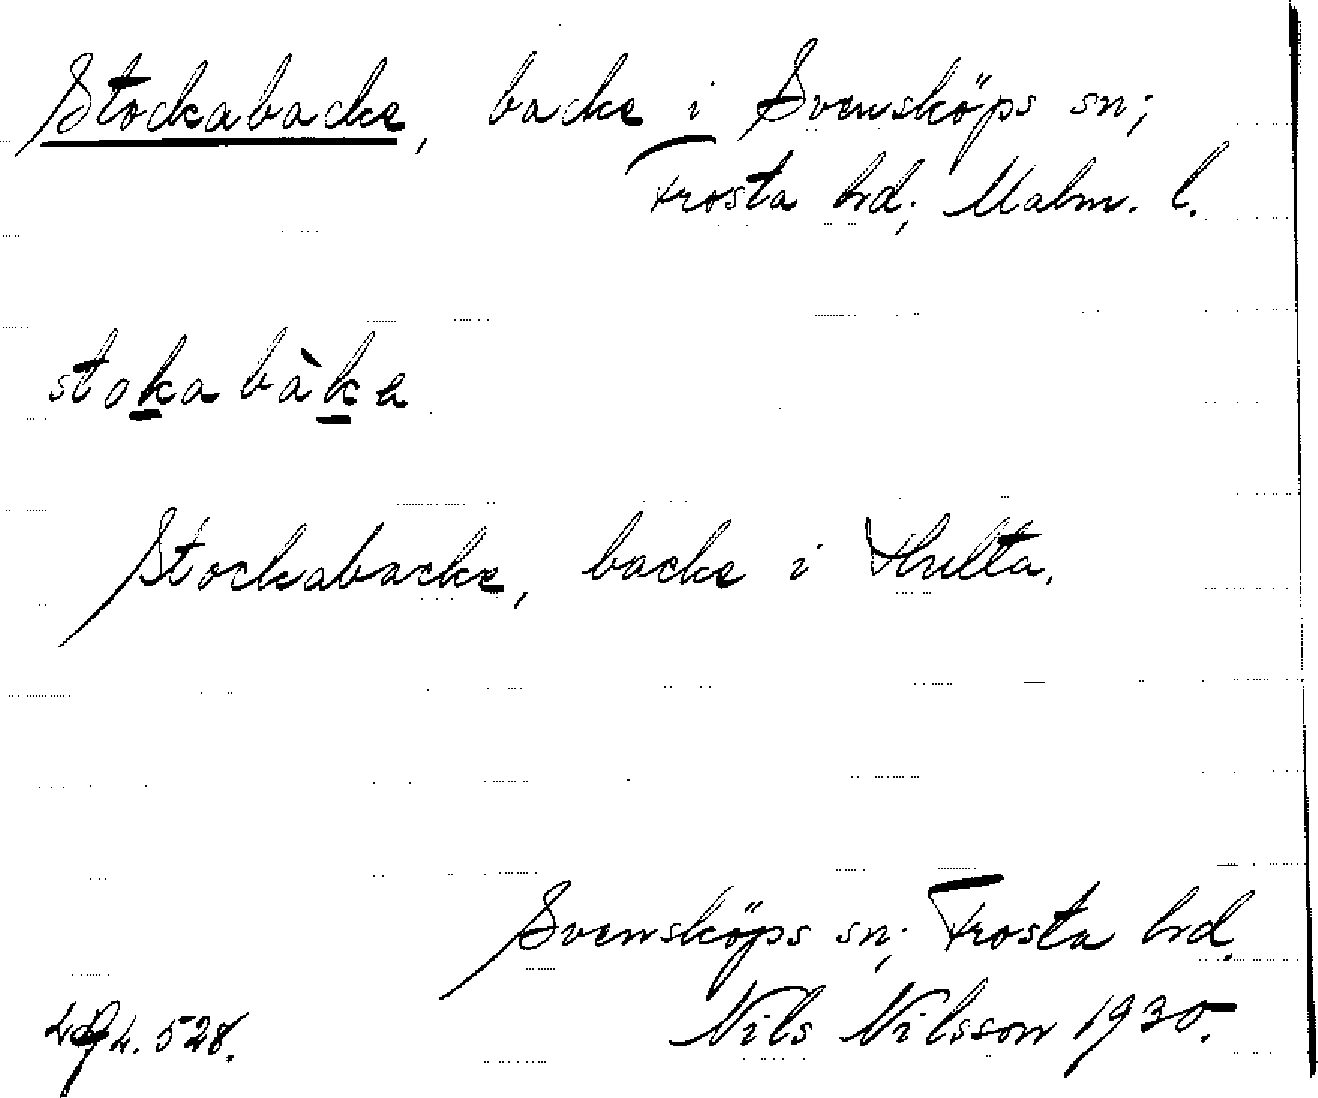 Stockabacke, backe i Svensköps sn;
Frosta hd; Malm. l.
stokabàka
Stockabacke, backe i Hulta.
Svensköps sn; Frosta hd.
Nils Nilsson 1930.
528.